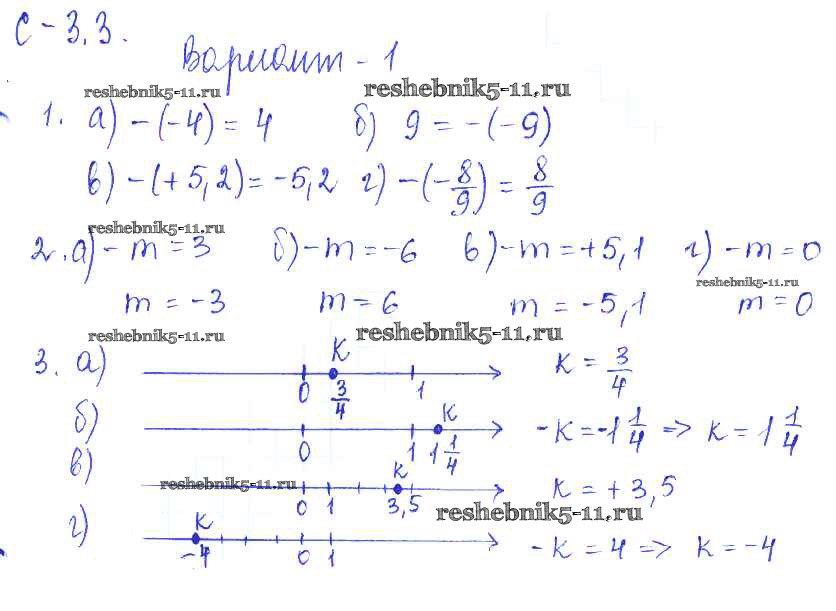 С - 3.3.
Вариант - 1
reshebnik5-11.ru reshebnik5-11.ru
1. а) -(-4) = 4 б) 9 = -(-9)
в) -(+5,2) = -5,2 г) -(-8/9) = 8/9
reshebnik5-11.ru
2. а) -m = 3 б) -m = -6 в) -m = +5,1 г) -m = 0
reshebnik5-11.ru
m = -3 m = 6 m = -5,1 m = 0
reshebnik5-11.ru reshebnik5-11.ru
3. а) K 0 3/4 1 K = 3/4
б) K 0 1 1 1/4 -K = -1 1/4 => K = 1 1/4
в) K 0 1 3,5 K = +3,5
reshebnik5-11.ru
reshebnik5-11.ru
г) K -4 0 1 -K = 4 => K = -4